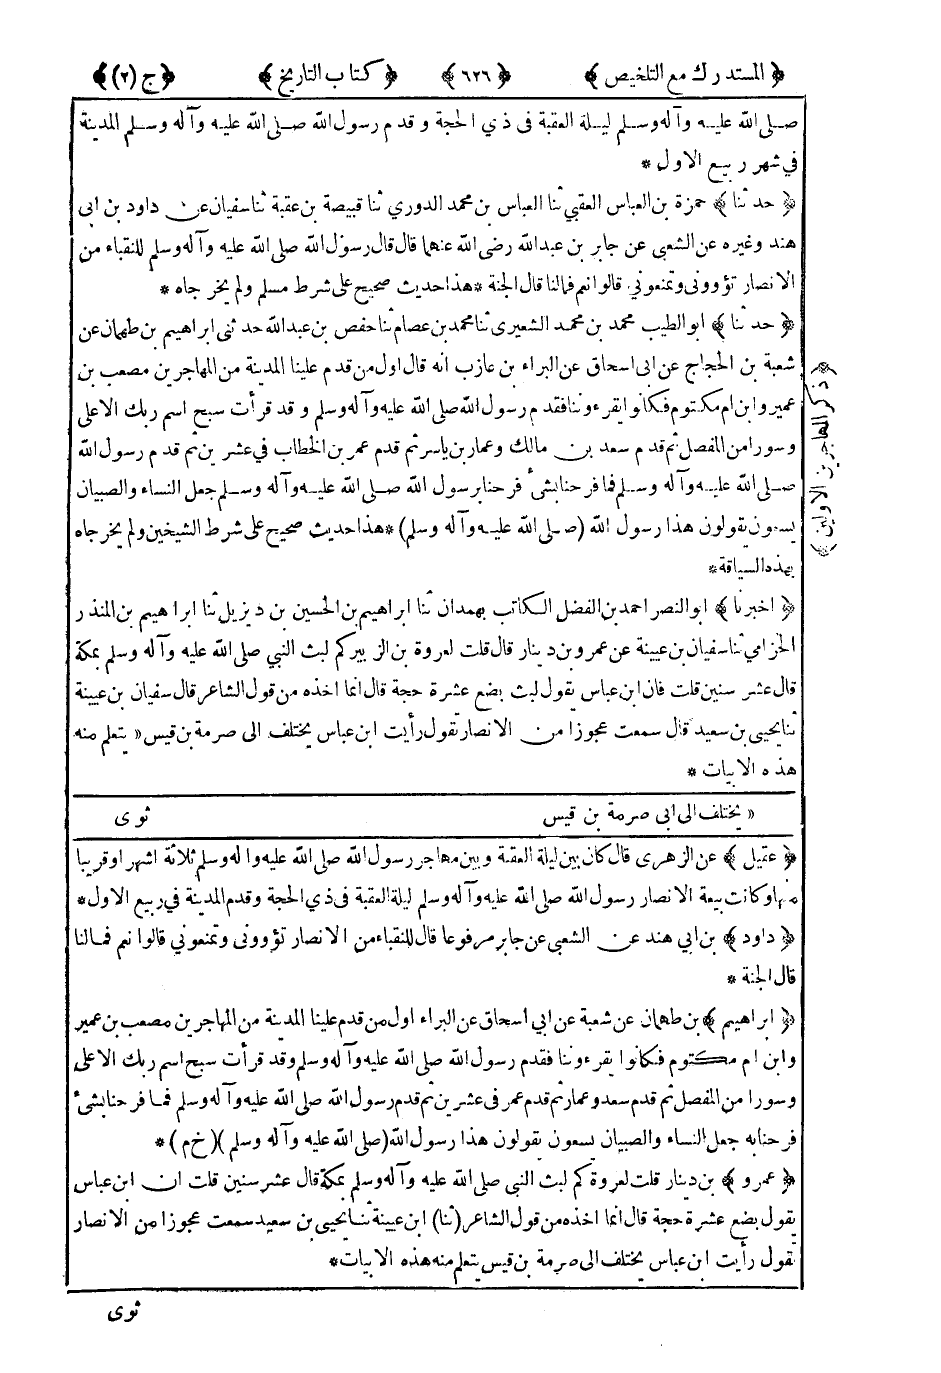 ﴿ المستدرك مع التلخيص ﴾ ﴿ ٦٢٦ ﴾ ﴿ كتاب التاريخ ﴾ ﴿ ج (٢) ﴾
صلى الله عليه وآله وسلم ليلة العقبة فى ذي الحجة و قدم رسول الله صلى الله عليه وآله وسلم المدينة
في شهر ربيع الاول *
﴿ حدثنا ﴾ حمزة بن العباس العقبي ثنا العباس بن محمد الدوري ثنا قبيصة بن عقبة ثنا سفيان عن داود بن ابى
هند وغيره عن الشعبى عن جابر بن عبد الله رضى الله عنهما قال قال رسول الله صلى الله عليه وآله وسلم للنقباء من
الانصار تؤوونى وتمنعوني قالوا نعم فمالنا قال الجنة * هذا حديث صحيح على شرط مسلم ولم يخرجاه *
﴿ حدثنا ﴾ ابو الطيب محمد بن محمد الشعيرى ثنا محمد بن عصام ثنا حفص بن عبد الله حدثنى ابراهيم بن طهمان عن
شعبة بن الحجاج عن ابى اسحاق عن البراء بن عازب انه قال اول من قدم علينا المدينة من المهاجرين مصعب بن
عمير وابن ام مكتوم فكانوا يقرءوننا فقدم رسول الله صلى الله عليه وآله وسلم و قد قرأت سبح اسم ربك الاعلى
وسورا من المفصل ثم قدم سعد بن مالك وعمار بن ياسر ثم قدم عمر بن الخطاب في عشرين ثم قدم رسول الله
صلى الله عليه وآله وسلم فما فرحنا بشئ فرحنا برسول الله صلى الله عليه وآله وسلم جعل النساء والصبيان
يسعون يقولون هذا رسول الله (صلى الله عليه وآله وسلم) * هذا حديث صحيح على شرط الشيخين ولم يخرجاه
بهذه السياقة *
﴿ ذكر المهاجرين الاولين ﴾
﴿ اخبرنا ﴾ ابو النصر احمد بن الفضل الكاتب بهمدان ثنا ابراهيم بن الحسين بن ديزيل ثنا ابراهيم بن المنذر
الحزامي ثنا سفيان بن عيينة عن عمرو بن دينار قال قلت لعروة بن الزبير كم لبث النبي صلى الله عليه وآله وسلم بمكة
قال عشر سنين قلت فان ابن عباس يقول لبث بضع عشرة حجة قال انما اخذه من قول الشاعر قال سفيان بن عيينة
ثنا يحيى بن سعيد قال سمعت عجوزا من الانصار تقول رأيت ابن عباس يختلف الى صرمة بن قيس « يتعلم منه
هذه الابيات *
« يختلف الى ابى صرمة بن قيس ثوى
﴿ عقيل ﴾ عن الزهرى قال كان بين ليلة العقبة وبين مهاجر رسول الله صلى الله عليه واله وسلم ثلاثة اشهر او قريبا
منها وكانت بيعة الانصار رسول الله صلى الله عليه وآله وسلم ليلة العقبة فى ذي الحجة وقدم المدينة في ربيع الاول *
﴿ داود ﴾ بن ابي هند عن الشعبى عن جابر مرفوعا قال للنقباء من الانصار تؤوونى وتمنعوني قالوا نعم فمالنا
قال الجنة *
﴿ ابراهيم ﴾ بن طهمان عن شعبة عن ابي اسحاق عن البراء اول من قدم علينا المدينة من المهاجرين مصعب بن عمير
وابن ام مكتوم فكانوا يقرءوننا فقدم رسول الله صلى الله عليه وآله وسلم وقد قرأت سبح اسم ربك الاعلى
وسورا من المفصل ثم قدم سعد وعمار ثم قدم عمر فى عشرين ثم قدم رسول الله صلى الله عليه وآله وسلم فما فرحنا بشئ
فرحنا به جعل النساء والصبيان يسعون يقولون هذا رسول الله (صلى الله عليه وآله وسلم ) (خ م ) *
﴿ عمرو ﴾ بن دينار قلت لعروة كم لبث النبى صلى الله عليه وآله وسلم بمكة قال عشر سنين قلت ان ابن عباس
يقول بضع عشرة حجة قال انما اخذه من قول الشاعر (ثنا) ابن عيينة ثنا يحيى بن سعيد سمعت عجوزا من الانصار
تقول رأيت ابن عباس يختلف الى صرمة بن قيس يتعلم منه هذه الابيات *
ثوى